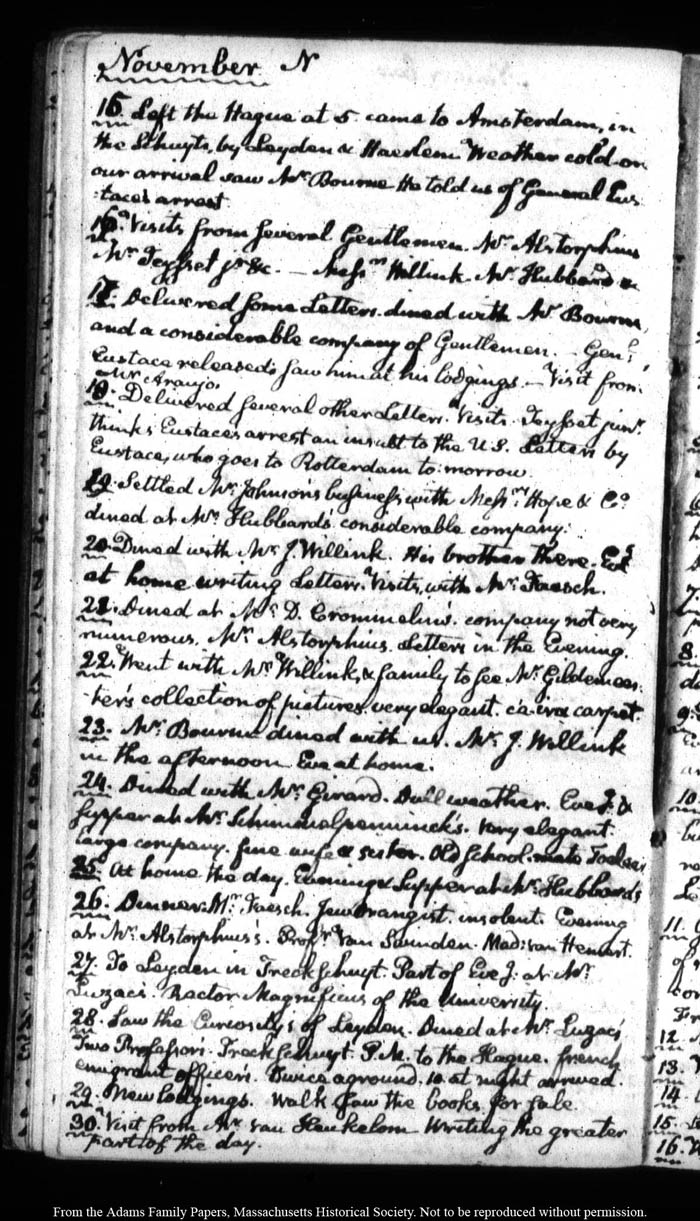 November N
15. Left the Hague at 5. came to Amsterdam, in
the Schuyts, by Leyden & Haerlem Weather cold. on
our arrival saw Mr. Bourne He told us of General Eus-
-tace's arrest.
16. Visits from several Gentlemen. Mr. Alstorphius
Mr. Teysset jr. &c. — Messrs Willink. Mr. Hubbard
17. Delivered some Letters. dined with Mr. Bourne,
and a considerable company of Gentlemen. — Genl.
Eustace released; saw him at his lodgings. — Visit from
Mr. Araujo.
18. Delivered several other Letters. Visits. Teysset junr.
thinks Eustace's arrest an insult to the U.S. Letters by
Eustace, who goes to Rotterdam to-morrow.
19. Settled Mr. Johnson's business with Messrs. Hope & Co.
dined at Mr. Hubbard's. considerable company.
20. Dined with Mr. J. Willink. His brother there. Eve
at home writing Letters. Visits, with Mr. Faesch.
21. Dined at Mr. D. Crommelin's. company not very
numerous. Mr. Alstorphius. Letters in the Evening.
22. Went with Mr. Willink, & family to see Mr. Gildemees-
-ter's collection of pictures. very elegant. ca-ira carpet.
23. Mr. Bourne dined with us. Mr. J. Willink
in the afternoon Eve at home.
24. Dined with Mr. Girard. Dull weather. Eve J. &
supper at Mr. Schimmelpenninck's. very elegant.
large company. fine wife & sister. Old School-mate
25. At home the day. Evening & Supper at Mr. Hubbard's
26. Dinner. Mr. Faesch. Jew Orangist. insolent. Evening
at Mr. Alstorphius's. Profr. Van Swinden. Mad: van Hemert.
27. To Leyden in Treckschuyt. Part of Eve J. at Mr.
Luzac's. Rector Magnificus of the University
28. Saw the Curiosity's of Leyden. Dined at Mr. Luzac's
Two Professors. Treckschuyt. P.M. to the Hague. french
emigrant officers. Twice aground. 10. at night arrived.
29. New Lodgings. Walk saw the books for sale.
30. Visit from Mr. van Heukelom Writing the greater
part of the day.
7.
8.
9.
10.
11.
12.
13.
14.
15.
16.
From the Adams Family Papers, Massachusetts Historical Society. Not to be reproduced without permission.